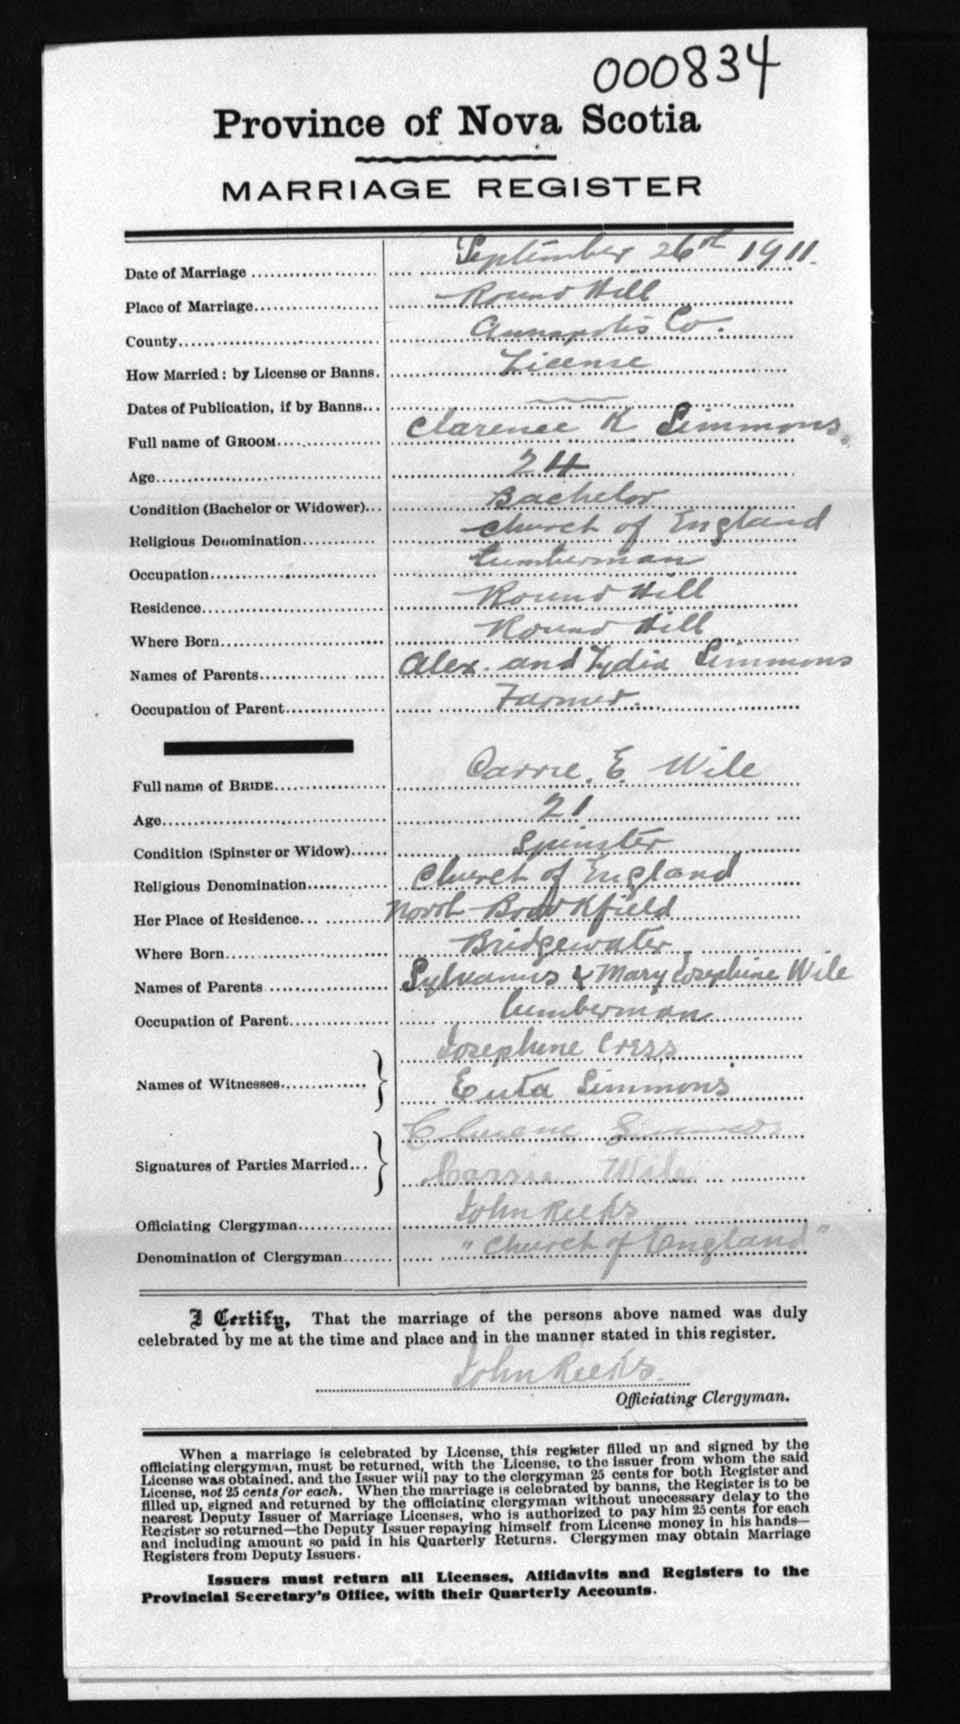 000834
Province of Nova Scotia
MARRIAGE REGISTER
Date of Marriage September 26th 1911.
Place of Marriage Round Hill
County Annapolis Co.
How Married: by License or Banns. License
Dates of Publication, if by Banns
Full name of GROOM Clarence K Simmons.
Age 24
Condition (Bachelor or Widower) Bachelor
Religious Denomination Church of England
Occupation Lumberman
Residence Round Hill
Where Born Round Hill
Names of Parents Alex. and Lydia Simmons
Occupation of Parent Farmer.
Full name of BRIDE Carrie. E. Wile
Age 21
Condition (Spinster or Widow) Spinster
Religious Denomination Church of England
Her Place of Residence North Brookfield
Where Born Bridgewater
Names of Parents Sylvanus & Mary Josephine Wile
Occupation of Parent Lumberman
Names of Witnesses Josephine Cress
Simmons
Signatures of Parties Married
Carrie Wile
Officiating Clergyman John Reeks
Denomination of Clergyman "Church of England"
I Certify, That the marriage of the persons above named was duly
celebrated by me at the time and place and in the manner stated in this register.
John Reeks.
Officiating Clergyman.
When a marriage is celebrated by License, this register filled up and signed by the
officiating clergyman, must be returned, with the License, to the issuer from whom the said
License was obtained, and the Issuer will pay to the clergyman 25 cents for both Register and
License, not 25 cents for each. When the marriage is celebrated by banns, the Register is to be
filled up, signed and returned by the officiating clergyman without unnecessary delay to the
nearest Deputy Issuer of Marriage Licenses, who is authorized to pay him 25 cents for each
Register so returned—the Deputy Issuer repaying himself from License money in his hands—
and including amount so paid in his Quarterly Returns. Clergymen may obtain Marriage
Registers from Deputy Issuers.
Issuers must return all Licenses, Affidavits and Registers to the
Provincial Secretary's Office, with their Quarterly Accounts.